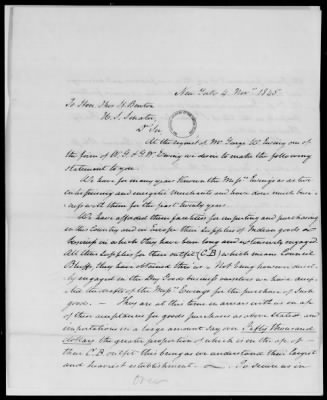 New York 4 Nov.r 1845
To Hon. Thos H. Benton
U. S. Senator
Dr Sir
At the request of Mr George W. Ewing one of
the firm of W. G. & G. W. Ewing we desire to make the following
statement to you
We have for many years known the Messrs Ewings as active
enterprising and energetic merchants and have done much busi-
ness with them for the past twenty years
We have afforded them facilities for importing and purchasing
in this Country and in Europe their Supplies of Indian goods
in which they have been long and extensively engaged
All their Supplies for their outfit (C.B.) which means Council
Bluffs, they have obtained thro us. Not being however direct-
ly engaged in the Dry Goods business ourselves we have accep-
ted the drafts of the Messrs Ewings for the purchase of Such
goods. — They are at this time in arrears with us on a/c
of their acceptances for goods purchased as above Stated and
importations in a large amount say over Fifty thousand
dollars the greater proportion of which is on the a/c of
their C.B. outfit this being as we understand their largest
and heaviest establishment. — To secure us in
Over